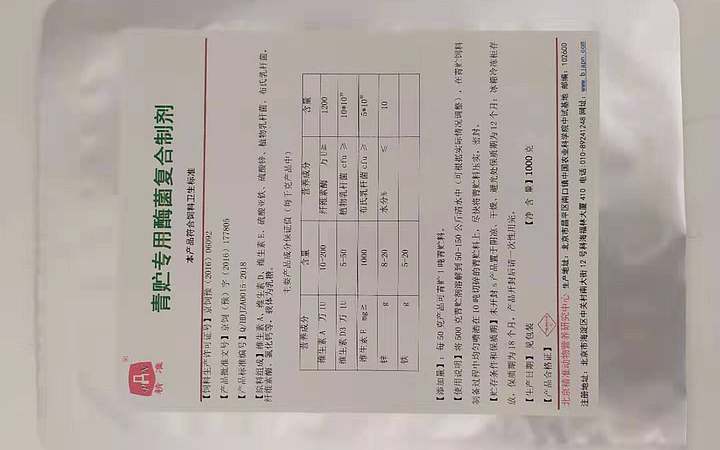 精准
青贮专用酶菌复合制剂
本产品符合饲料卫生标准
【饲料生产许可证号】京饲预（2016）06092
【产品批准文号】京饲（预）字（2016）177805
【产品标准编号】Q/HDJZA0015-2018
【原料组成】维生素A、维生素D、维生素E、硫酸亚铁、硫酸锌、植物乳杆菌、布氏乳杆菌、
纤维素酶、氯化钙等，载体为乳糖。
主要产品成分保证值（每千克产品中）
营养成分 含量 营养成分 含量
维生素A 万IU 10-200 纤维素酶 万U≥ 1200
维生素D3 万IU 5-50 植物乳杆菌 cfu ≥ 10*10¹⁰
维生素E mg≥ 1000 布氏乳杆菌 cfu ≥ 5*10¹⁰
锌 g 8-20 水分% ≤ 10
铁 g 5-20
【添加量】：每50克产品可青贮1吨青贮料。
【使用说明】将500克青贮剂溶解到50-150公斤清水中（可根据实际情况调整），在青贮饲料
制备过程中均匀喷洒在10吨切碎的青贮料上，尽快将青贮料压实，密封。
【贮存条件和保质期】未开封产品置于阴凉、干燥、避光处保质期为12个月；冰箱冷冻柜存
放，保质期为18个月，产品开封后请一次性用完。
【生产日期】见包装 【净 含 量】1000克
【产品合格证】
北京精准动物营养研究中心 生产地址：北京市昌平区南口镇中国农业科学院中试基地 邮编：102600
注册地址：北京市海淀区中关村南大街12号科海福林大厦410 电话 010-89241248 网址：www.bjapn.com